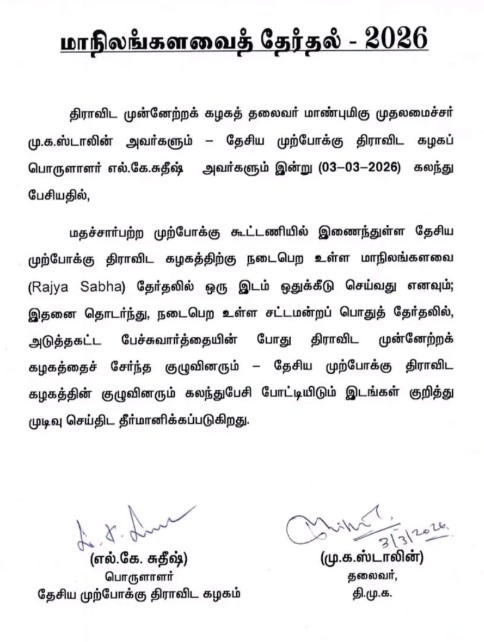 மாநிலங்களவைத் தேர்தல் - 2026
திராவிட முன்னேற்றக் கழகத் தலைவர் மாண்புமிகு முதலமைச்சர்
மு.க.ஸ்டாலின் அவர்களும் – தேசிய முற்போக்கு திராவிட கழகப்
பொருளாளர் எல்.கே.சுதீஷ் அவர்களும் இன்று (03-03-2026) கலந்து
பேசியதில்,
மதச்சார்பற்ற முற்போக்கு கூட்டணியில் இணைந்துள்ள தேசிய
முற்போக்கு திராவிட கழகத்திற்கு நடைபெற உள்ள மாநிலங்களவை
(Rajya Sabha) தேர்தலில் ஒரு இடம் ஒதுக்கீடு செய்வது எனவும்;
இதனை தொடர்ந்து, நடைபெற உள்ள சட்டமன்றப் பொதுத் தேர்தலில்,
அடுத்தகட்ட பேச்சுவார்த்தையின் போது திராவிட முன்னேற்றக்
கழகத்தைச் சேர்ந்த குழுவினரும் – தேசிய முற்போக்கு திராவிட
கழகத்தின் குழுவினரும் கலந்துபேசி போட்டியிடும் இடங்கள் குறித்து
முடிவு செய்திட தீர்மானிக்கப்படுகிறது.
3/3/2026
(எல்.கே. சுதீஷ்)
பொருளாளர்
தேசிய முற்போக்கு திராவிட கழகம்
(மு.க.ஸ்டாலின்)
தலைவர்,
தி.மு.க.